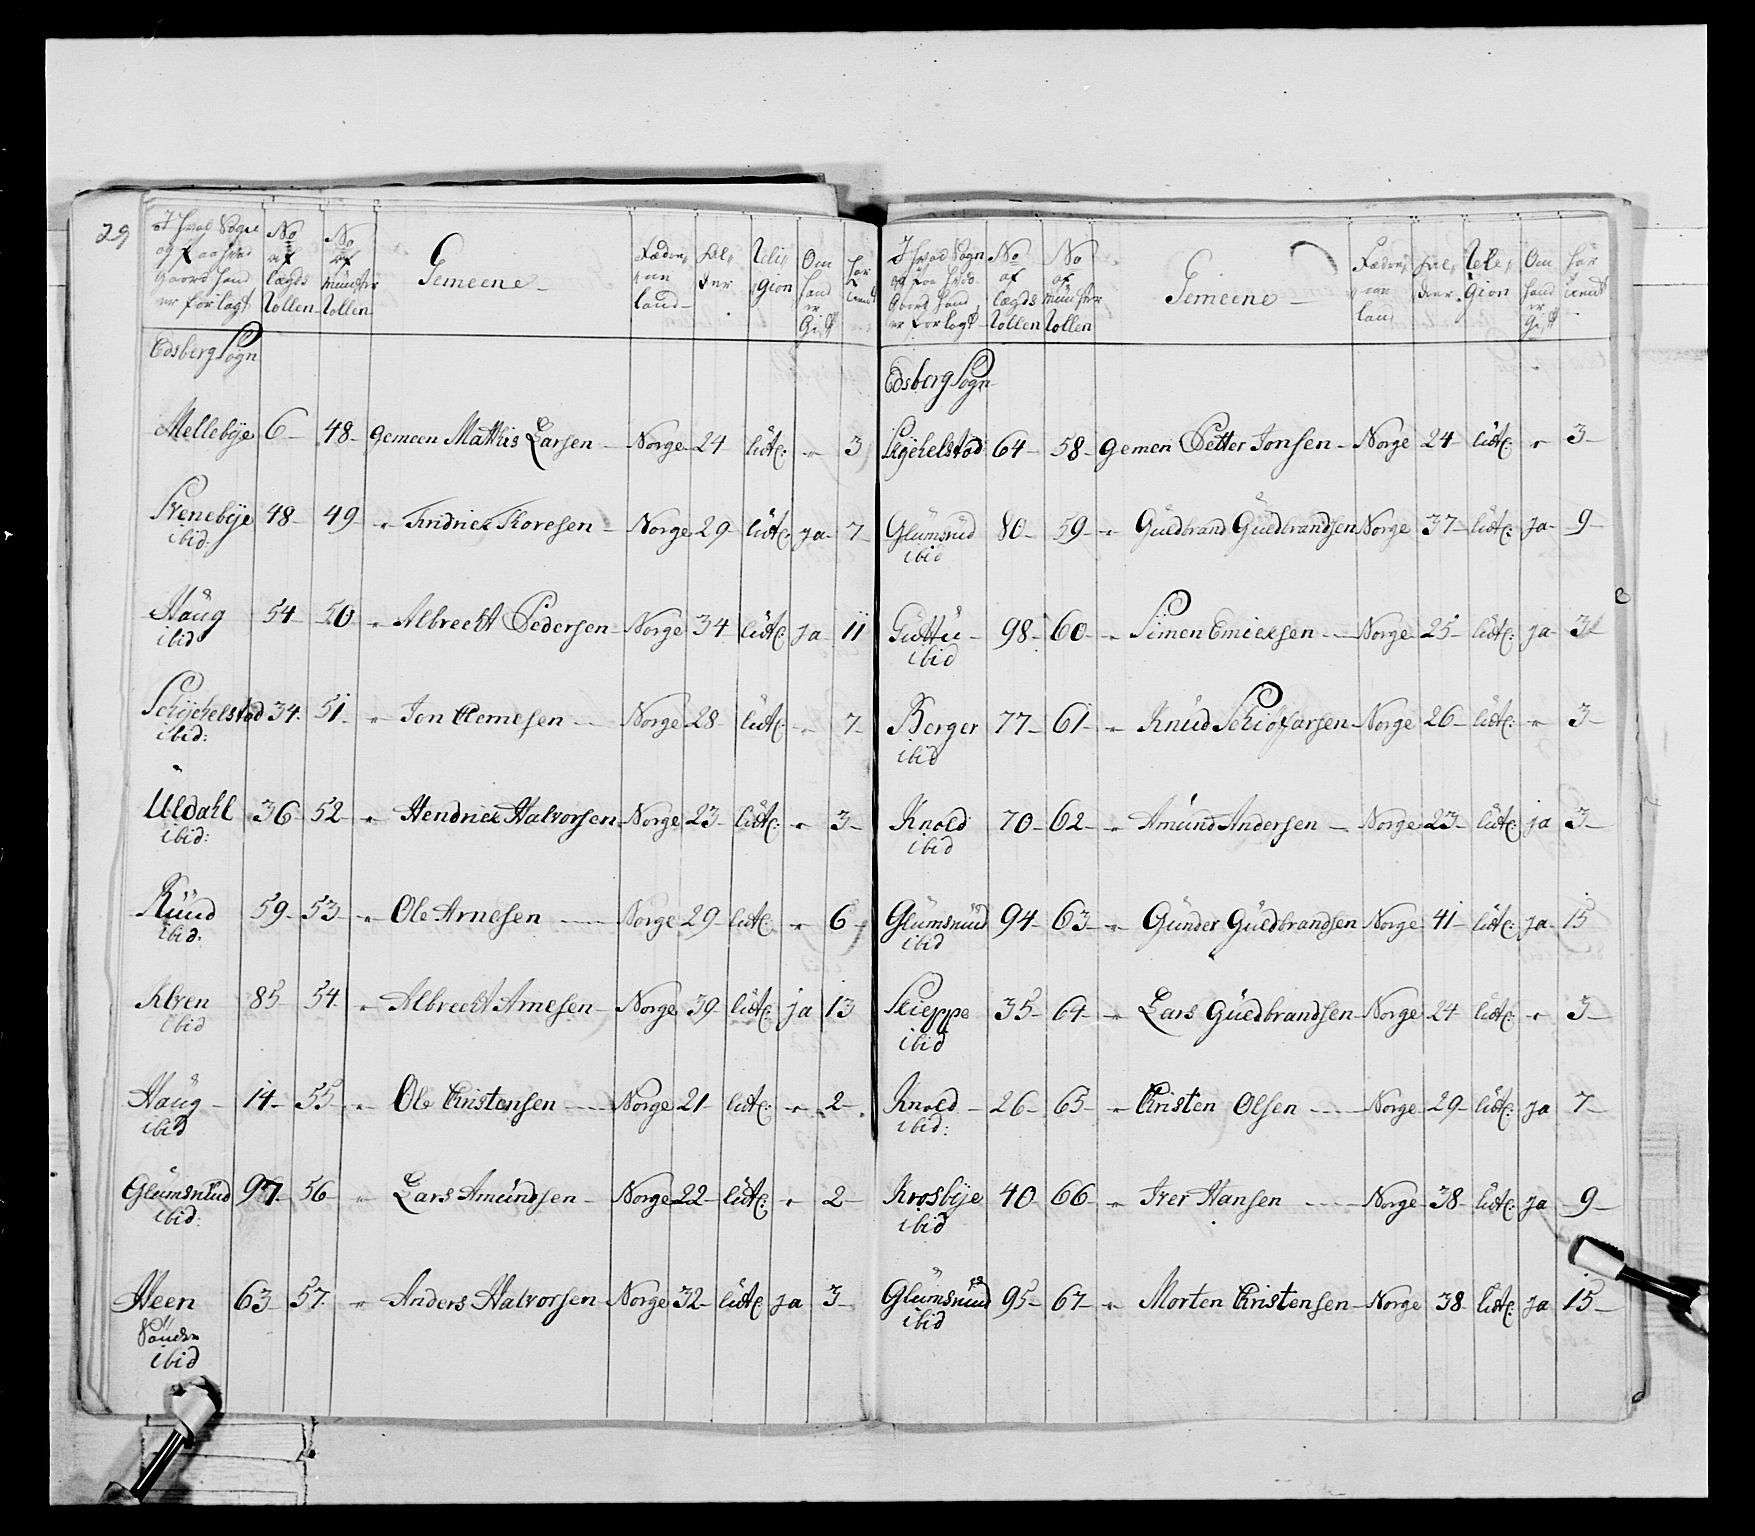 29
I hvad Sogn og paa hvad Gaard hand er forlagt | No af Lægds Rollen | No af Münster Rollen | Gemeene | Fædrene land | Alder | Religion | Om hand er Gift | har tient
Edsberg Sogn
Mellebÿe 6 48 Gemeen Mathis Larsen Norge 24 lüth: " 3
Svenebÿe ibid: 48 49 " Fridrick Thoresen Norge 29 lüth: ja 7
Haüg ibid 54 50 " Albrecht Pedersen Norge 34 lüth: ja 11
Schÿchelstad ibid: 34 51 " Jon Clemesen Norge 28 lüth: " 7
Üldahl ibid: 36 52 " Hendrick Halvorsen Norge 23 lüth: " 3
Rüüd ibid. 59 53 " Ole Arnesen Norge 29 luth: " 6
Alven ibid 85 54 " Albrecht Arnesen Norge 39 lüth: ja 13
Haüg ibid 14 55 " Ole Christensen Norge 21 lüth: " 2
Glümsrüd ibid: 97 56 " Lars Amündsen Norge 22 lüth: " 2
Heen Søndre ibid 63 57 " Anders Halvorsen Norge 32 lüth: ja 3
I hvad Sogn og paa hvad Gaard hand er forlagt | No af Lægds Rollen | No af Münster Rollen | Gemeene | Fædrene land | Alder | Religion | Om hand er Gift | har tient
Edsberg Sogn
Schÿchelstad 64 58 Gemen Petter Jonsen Norge 24 lüth: " 3
Glümsrüd ibid 80 59 " Güldbrand Güldbrandsen Norge 37 lüth: ja 9
Güttü ibid 98 60 " Simen Emicksen Norge 25 lüth: ja 3
Berger ibid 77 61 " Knüd Schiøfarsen Norge 26 lüth: " 3
Knold ibid 70 62 " Amünd Andersen Norge 23 lüth: ja 3
Glümsrüd ibid 94 63 " Günder Güldbrandsen Norge 41 lüth: ja 15
Skieppe ibid 35 64 " Lars Güldbrandsen Norge 24 lüth: " 3
Knold ibid: 26 65 " Christen Olsen Norge 29 lüth: ja 7
Krosbÿe ibid 40 66 " Iver Hansen Norge 38 lüth: ja 9
Glümsrüd ibid 95 67 " Morten Christensen Norge 38 lüth: ja 15